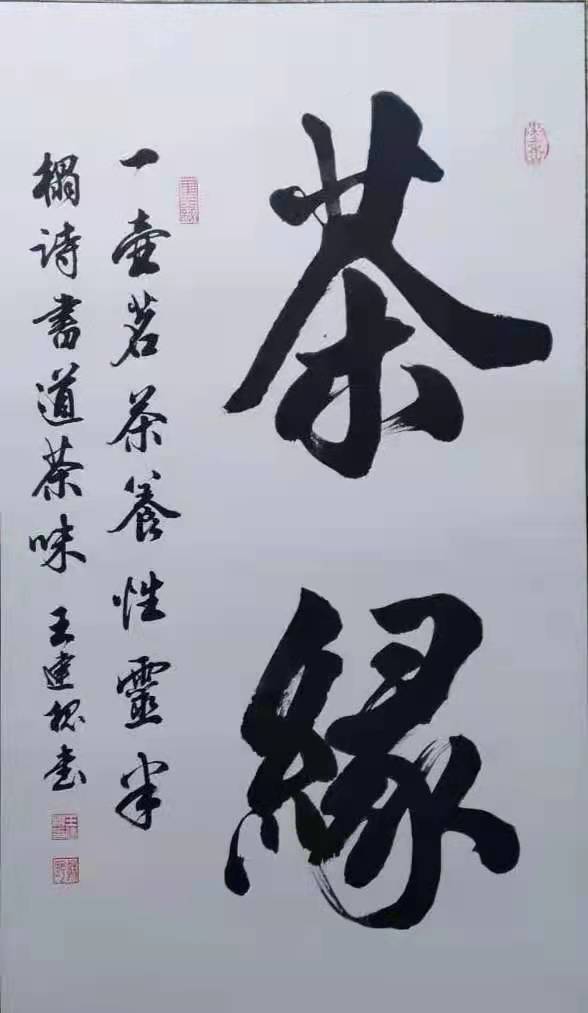 茶緣
一壶茗茶養性靈半
榻诗書道茶味 王建
书